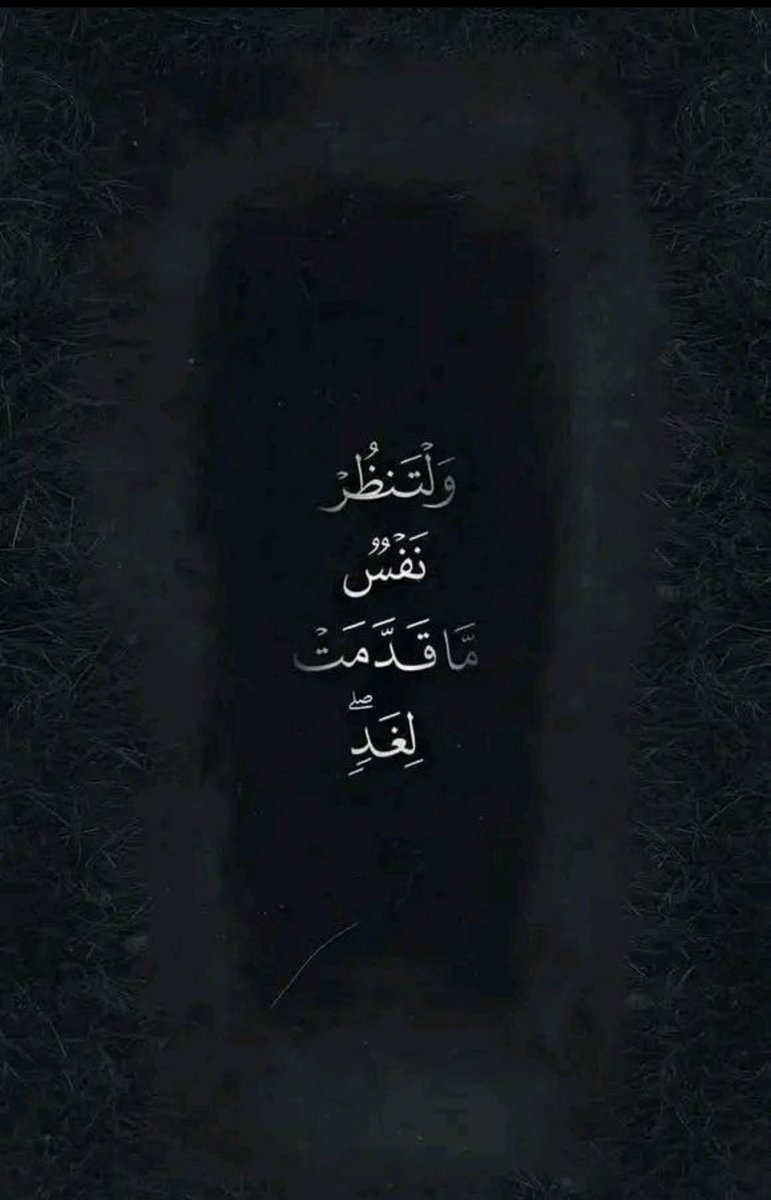 وَلۡتَنظُرۡ
نَفۡسٞ
مَّا قَدَّمَتۡ
لِغَدٖۖ